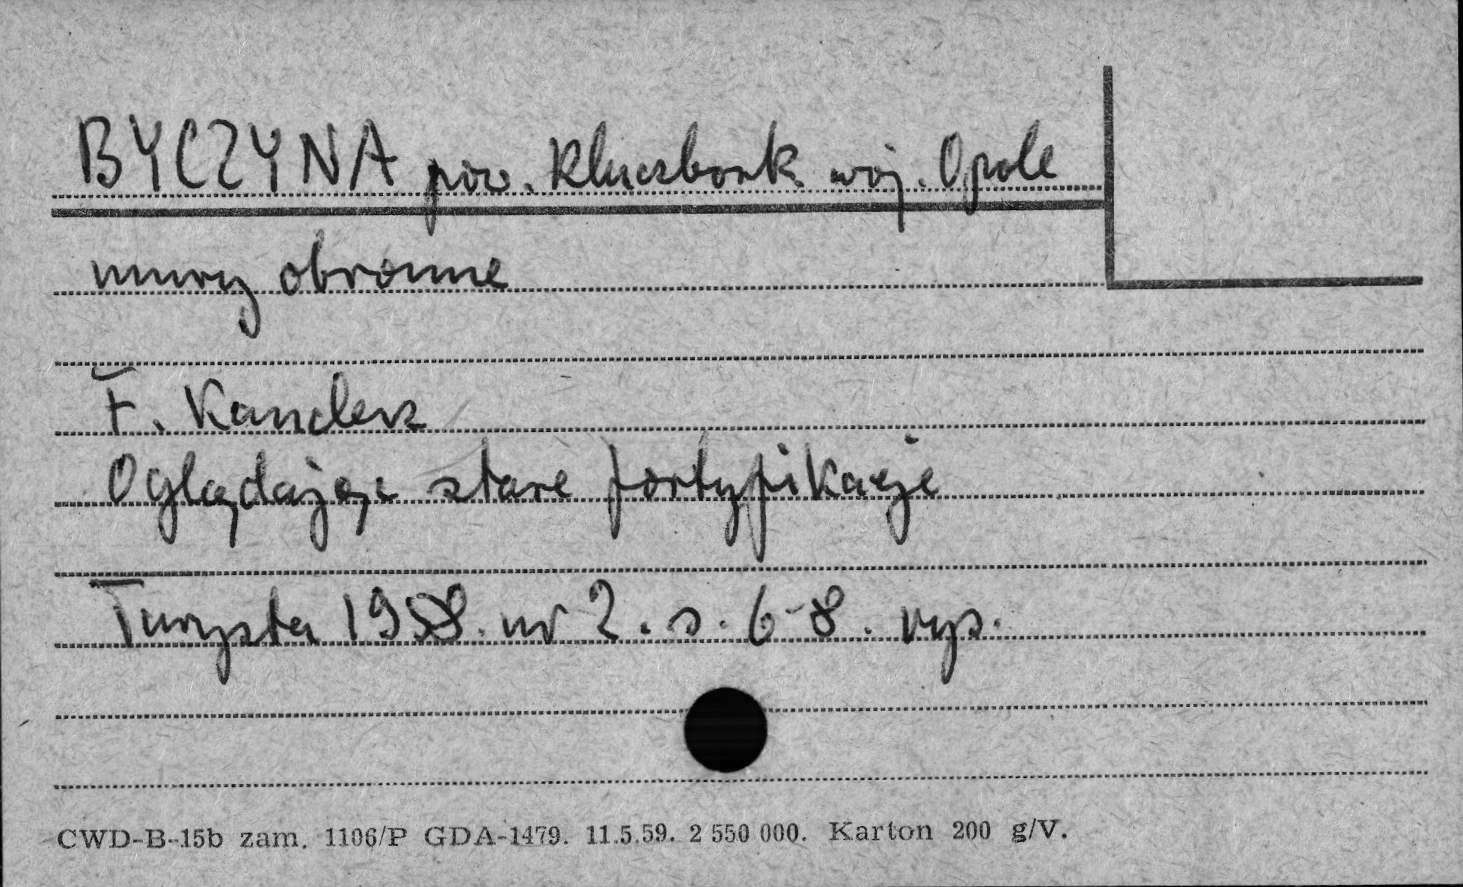 BYCZYNA pow. Kluczbork woj. Opole
mury obronne
F. Kanclerz
Oglądając stare fortyfikacje
Turysta 1958. nr 2. s. 6-8. rys.
CWD-B-15b zam. 1106/P GDA-1479. 11.5.59. 2 550 000. Karton 200 g/V.